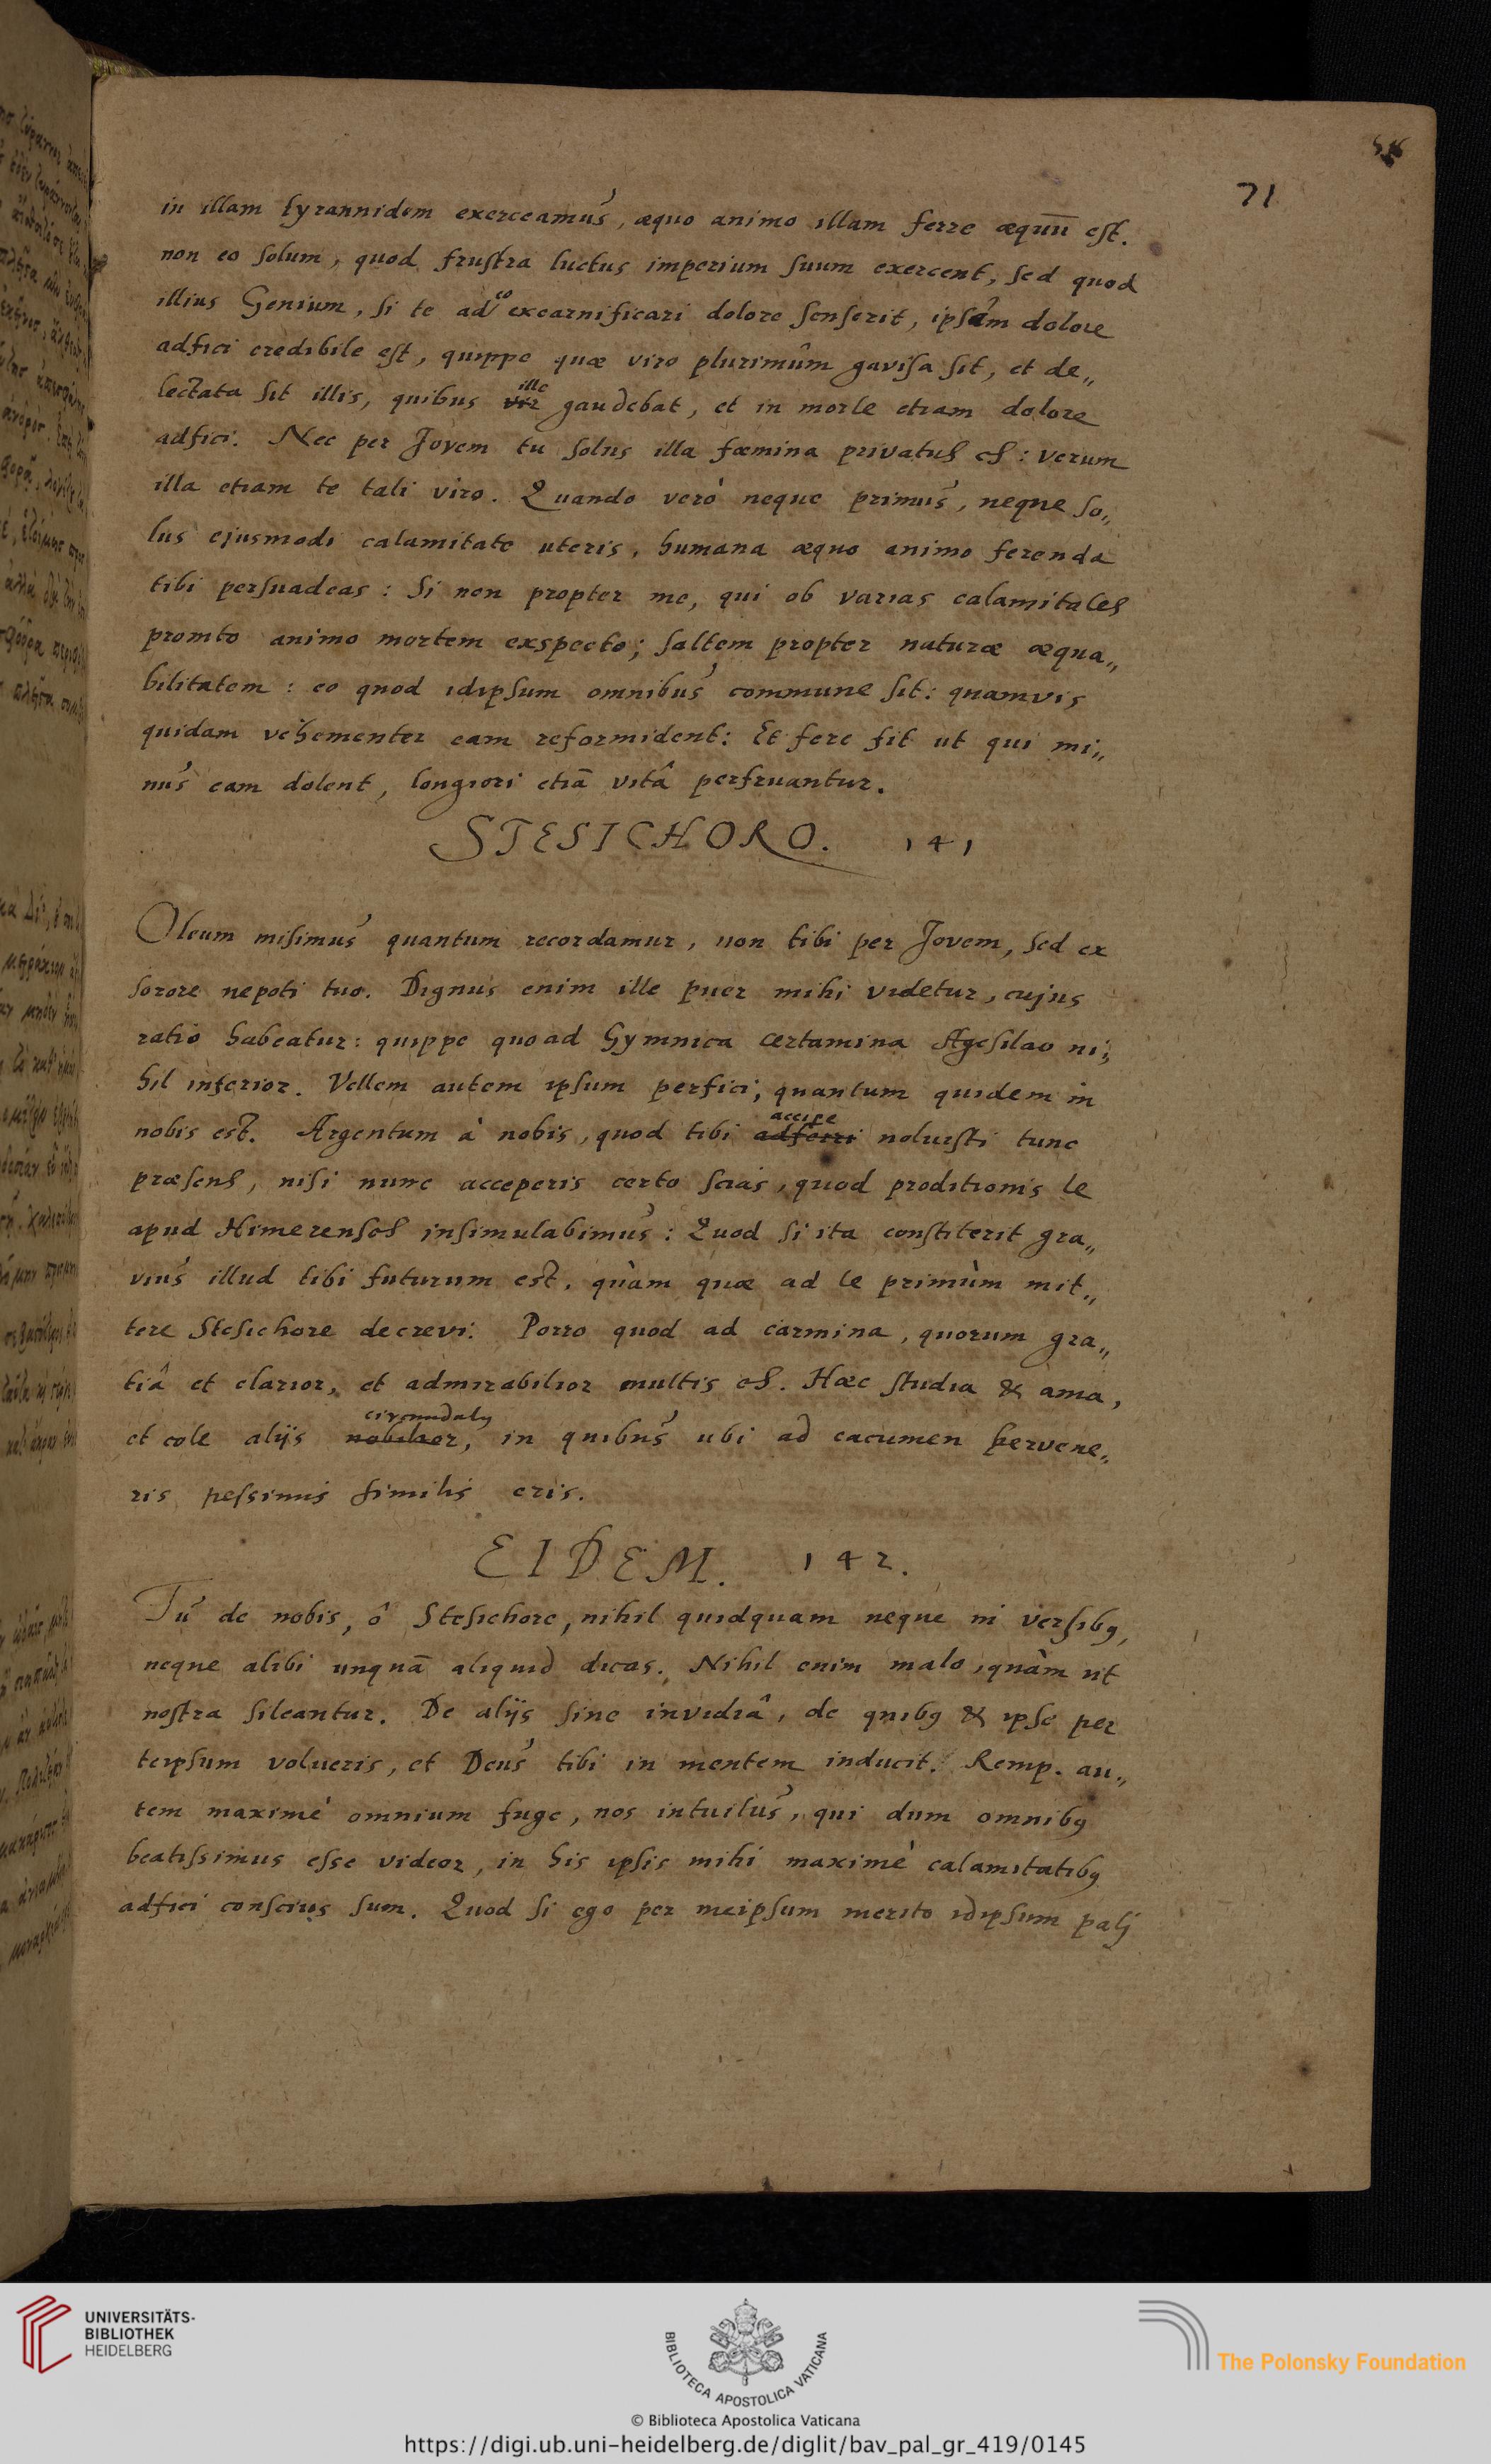 71
in illam tyrannidem exerceamus, æquo animo illam ferre æquū est.
non eo solum, quod frustra luctus imperium suum exercent, sed quod
illius Genium, si te adeo excarnificari dolore senserit, ipsam dolore
adfici credibile est, quippe quæ viro plurimûm gavisa sit, et de„
ille
lectata sit illis, quibus vir gaudebat, et in morte etiam dolore
adfici. Nec per Jovem tu solus illa fœmina privatus es: verum
illa etiam te tali viro. Quando verò neque primus, neque so„
lus ejusmodi calamitate uteris, humana æquo animo ferenda
tibi persuadeas: Si non propter me, qui ob varias calamitates
promto animo mortem exspecto; saltem propter naturæ æqua„
bilitatem: eo quod idipsum omnibus commune sit: quamvis
quidam vehementer eam reformident: Et fere fit ut qui mi„
nus eam dolent, longiori etiā vitâ perfruantur.
STESICHORO. 141
Oleum misimus quantum recordamur, non tibi per Jovem, sed ex
sorore nepoti tuo. Dignus enim ille puer mihi videtur, cujus
ratio habeatur: quippe quoad Gymnica certamina Agesilao ni„
hil inferior. Vellem autem ipsum perfici, quantum quidem in
accipe
nobis est. Argentum à nobis, quod tibi adferri noluisti tunc
præsens, nisi nunc acceperis certo scias, quod proditionis te
apud Himerenses insimulabimus: Quod si ita constiterit gra„
vius illud tibi futurum est, quàm quæ ad te primùm mit„
tere Stesichore decrevi. Porro quod ad carmina, quorum gra„
tiâ et clarior, et admirabilior multis es. Hæc studia & ama,
circundatus
et cole alijs nobilior, in quibus ubi ad cacumen pervene„
ris pessimis similis eris.
EIDEM. 142.
Tu de nobis, ô Stesichore, nihil quidquam neque in versibus,
neque alibi unquā aliquid dicas. Nihil enim malo, quàm ut
nostra sileantur. De alijs sine invidiâ, de quibus & ipse per
teipsum volueris, et Deus tibi in mentem inducit. Remp. au„
tem maximè omnium fuge, nos intuitus, qui dum omnibus
beatissimus esse videor, in his ipsis mihi maximè calamitatibus
adfici conscius sum. Quod si ego per meipsum merito idipsum patj
UNIVERSITÄTS-
BIBLIOTHEK
HEIDELBERG
BIBLIOTECA APOSTOLICA VATICANA
The Polonsky Foundation
© Biblioteca Apostolica Vaticana
https://digi.ub.uni-heidelberg.de/diglit/bav_pal_gr_419/0145